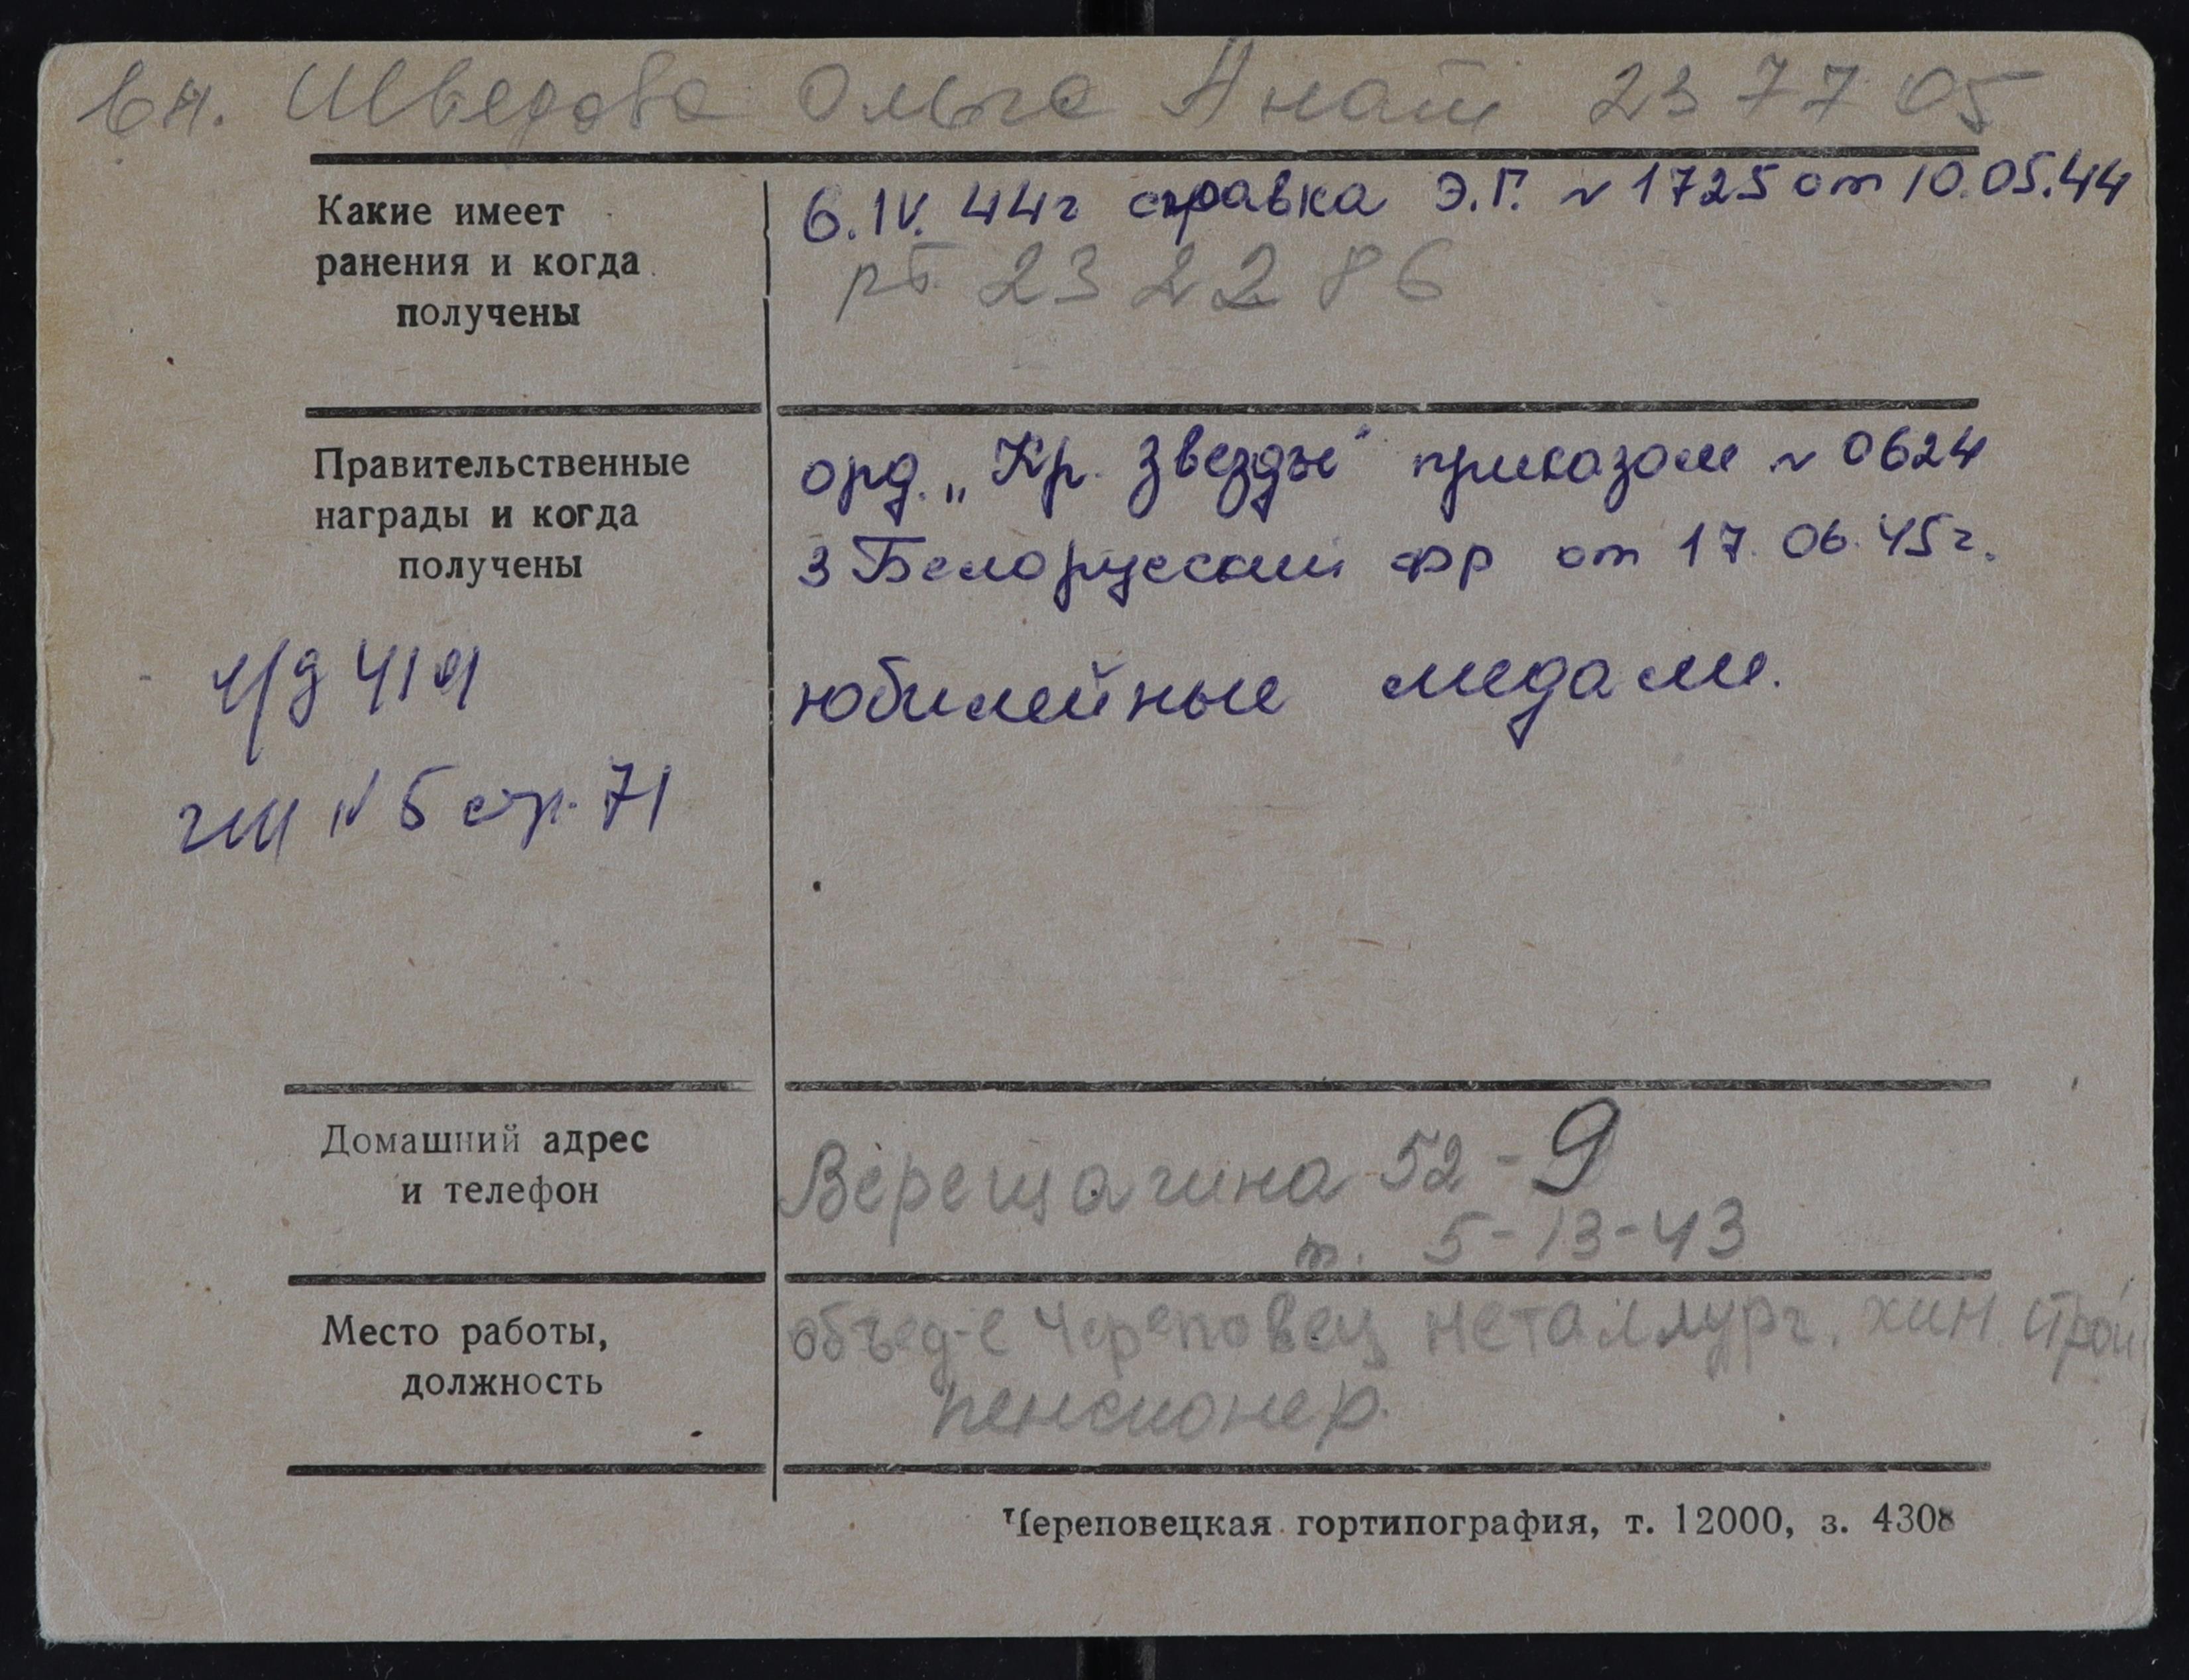 вн. Шведова Ольга Анат 23 77 05
Какие имеет
ранения и когда
получены
6.IV.44г справка Э.Г. № 1725 от 10.05.44
рт 23 22 86
Правительственные
награды и когда
получены
орд. „Кр. Звезды" приказом № 0624
3 Белорусский фр от 17.06.45г.
юбилейные медали.
стр. 71
Домашний адрес
и телефон
Верещагина 52-9
т. 5-13-43
Место работы,
должность
объед-е Череповец металлург. хим. строй
пенсионер.
Череповецкая гортипография, т. 12000, з. 4308